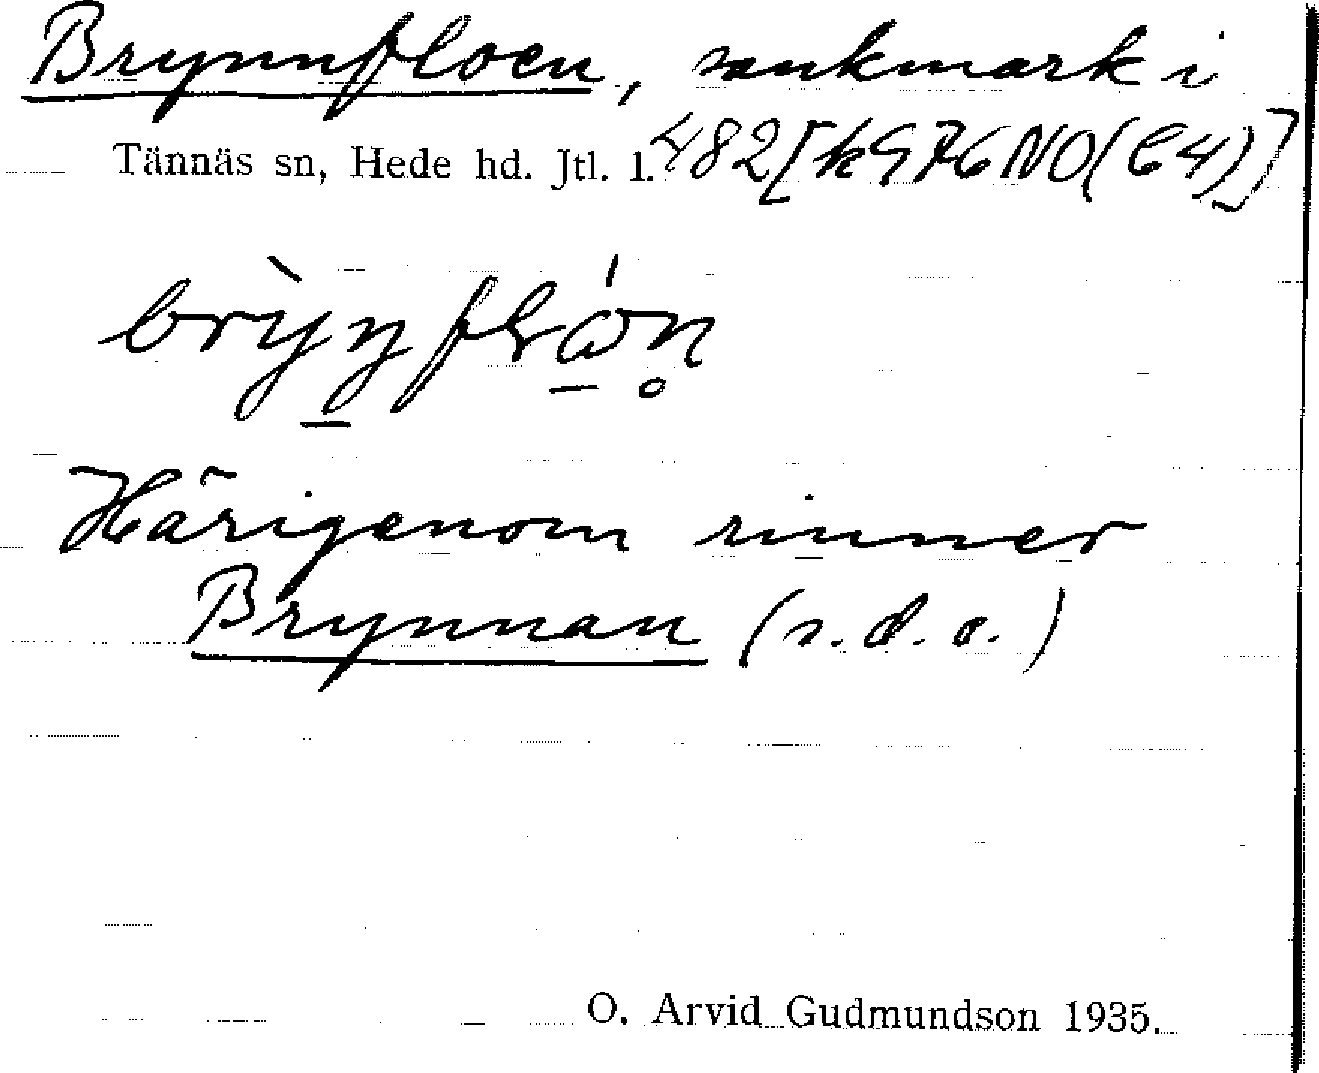 Brynnfloen, sankmark i
Tännäs sn, Hede hd. Jtl. l. 482[k976NO(C4)]
Härigenom rinner
Brynnan (s.d.o.)
O. Arvid Gudmundson 1935.